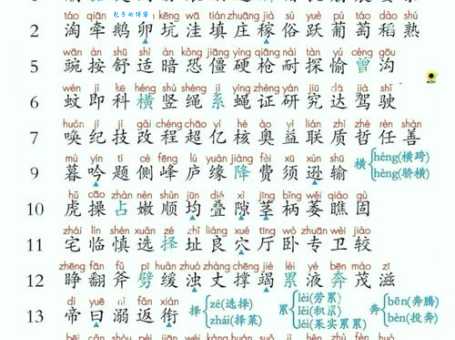 táo qiān 包子的博客 kēng wā tián zhuāng jià sú yuè pú táo dào shú
2 淘 牵 鹅 卵 坑 洼 填 庄 稼 俗 跃 葡 萄 稻 熟
wān àn shū shì àn kǒng jiāng yìng qiāng nài tàn yú céng gōu
5 豌 按 舒 适 暗 恐 僵 硬 枪 耐 探 愉 曾 沟
wén jí kē héng shù shéng xì yíng zhèng yán jiū dá jià shǐ
6 蚊 即 科 横 竖 绳 系 蝇 证 研 究 达 驾 驶
huàn jì jì gǎi chéng chāo yì hé ào yì lián zhì zhé rèn shàn
7 唤 纪 技 改 程 超 亿 核 奥 益 联 质 哲 任 善
mù yín tí cè fēng lú yuán jiàng fèi xū xùn shū
9 暮 吟 题 侧 峰 庐 缘 降 费 须 逊 输 横 héng(横跨) hèng(骄横)
hǔ cāo zhàn nèn shùn jūn dié xì jīng bǐng wěi qiáo gù
10 虎 操 占 嫩 顺 均 叠 隙 茎 柄 萎 瞧 固
zhái lín shèn xuǎn zé zhǐ liáng xué tīng wò zhuān wèi jiào
11 宅 临 慎 选 择 址 良 穴 厅 卧 专 卫 较
zhēng fān fǔ pī huǎn zhuó zhàng chēng jié lěi yè bēn mào zī
12 睁 翻 斧 劈 缓 浊 丈 撑 竭 累 液 奔 茂 滋
dì yuē nì fǎn xián
13 帝 曰 溺 返 衔 择 zé(选择) zhái(择菜) 累 lèi(劳累) lěi(积累) léi(果实累累) 奔 bēn(奔腾) bèn(投奔)